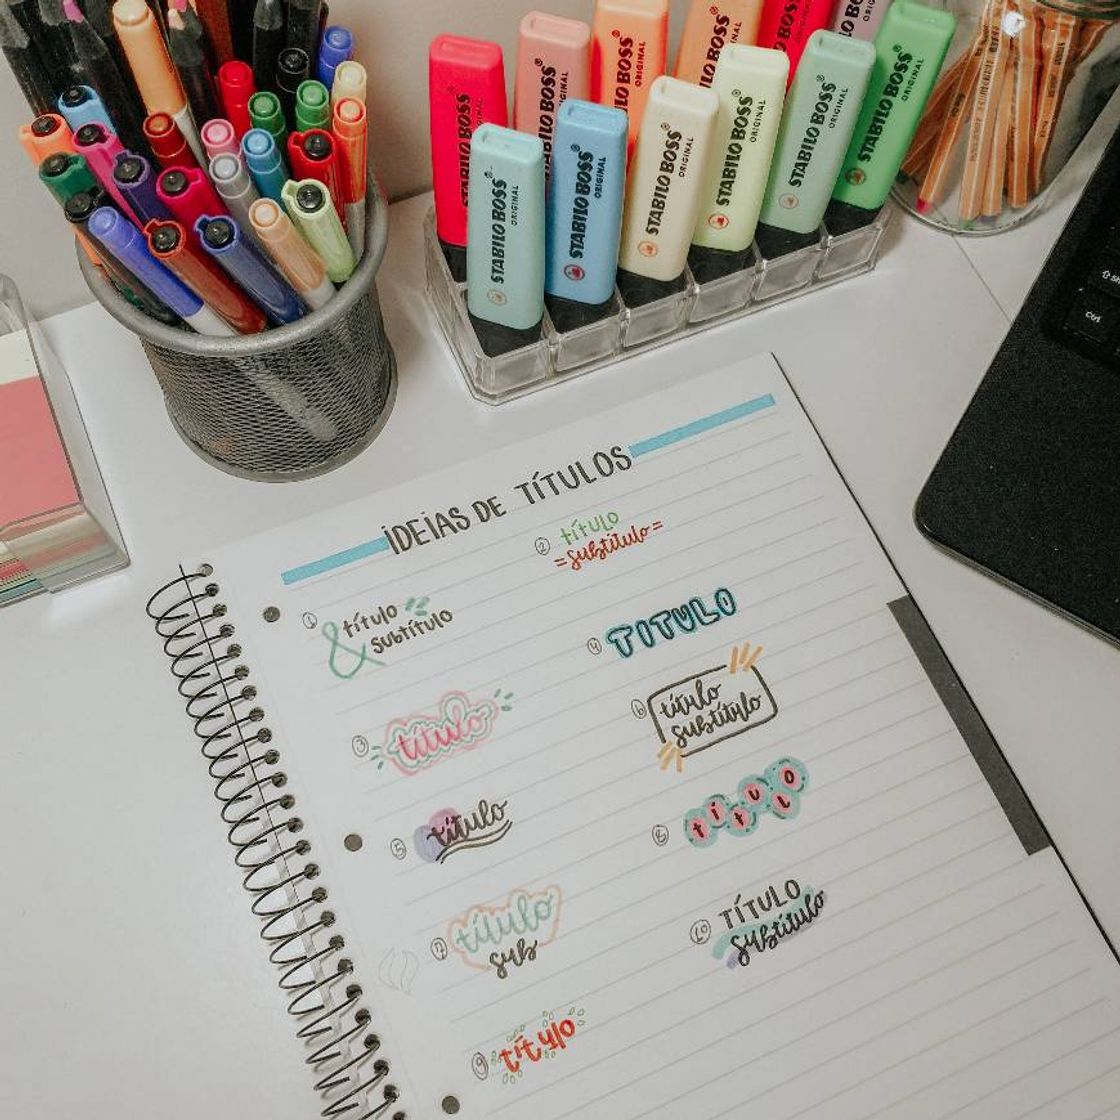 STABILO BOSS ORIGINAL
STABILO BOSS ORIGINAL
STABILO BOSS ORIGINAL
STABILO BOSS ORIGINAL
STABILO BOSS ORIGINAL
STABILO BOSS ORIGINAL
STABILO BOSS ORIGINAL
STABILO BOSS ORIGINAL
STABILO BOSS ORIGINAL
ctrl
IDEIAS DE TÍTULOS
1 título
& SUBTÍTULO
2 TÍTULO
=Subtítulo=
3 título
4 TITULO
5 título
6 título
subtítulo
7 título
sub
8 TÍTULO
9 título
10 TÍTULO
Subtítulo